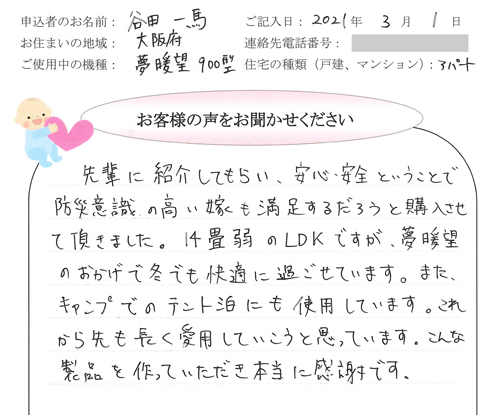 申込者のお名前： 谷田 一馬 ご記入日：2021年 3月 1日
お住まいの地域： 大阪府 連絡先電話番号：
ご使用中の機種： 夢暖望 900型 住宅の種類（戸建、マンション）：アパート
お客様の声をお聞かせください
先輩に紹介してもらい、安心・安全ということで
防災意識の高い嫁も満足するだろうと購入させ
て頂きました。14畳弱のLDKですが、夢暖望
のおかげで冬でも快適に過ごせています。また、
キャンプでのテント泊にも使用しています。これ
から先も長く愛用していこうと思っています。こんな
製品を作っていただき本当に感謝です。